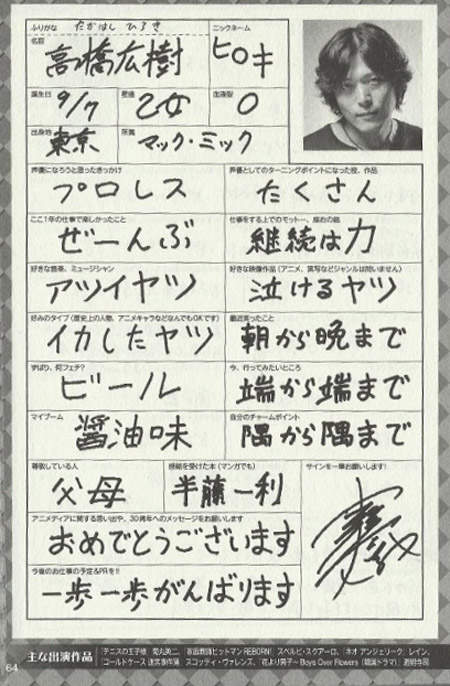 ふりがな たかはし ひろき
名前 高橋広樹
ニックネーム ヒロキ
誕生日 9/7
芸歴
血液型 O
出身地 東京
所属 マック・ミック
声優になろうと思ったきっかけ
プロレス
声優としてのターニングポイントになった役、作品
たくさん
ここ1年の仕事で楽しかったこと
ぜーんぶ
仕事をする上でのモットー、座右の銘
継続は力
好きな音楽、ミュージシャン
アツイヤツ
好きな映像作品(アニメ、実写などジャンルは問いません)
泣けるヤツ
好みのタイプ(歴史上の人物、アニメキャラなどなんでもOKです)
イカしたヤツ
最近笑ったこと
朝から晩まで
ずばり、何フェチ?
ビール
今、行ってみたいところ
端から端まで
マイブーム
醤油味
自分のチャームポイント
隅から隅まで
尊敬している人
父母
感銘を受けた本(マンガでも)
半藤一利
サインを一筆お願いします!
アニメディアに関する思い出や、30周年へのメッセージをお願いします
おめでとうございます
今後のお仕事の予定&PRを!!
一歩一歩がんばります
主な出演作品
『テニスの王子様』菊丸英二、『家庭教師ヒットマンREBORN!』スペルビ・スクアーロ、『ネオ アンジェリーク』レイン、
『コールドケース 迷宮事件簿』スコッティ・ヴァレンズ、『花より男子〜Boys Over Flowers(韓国ドラマ)』
64